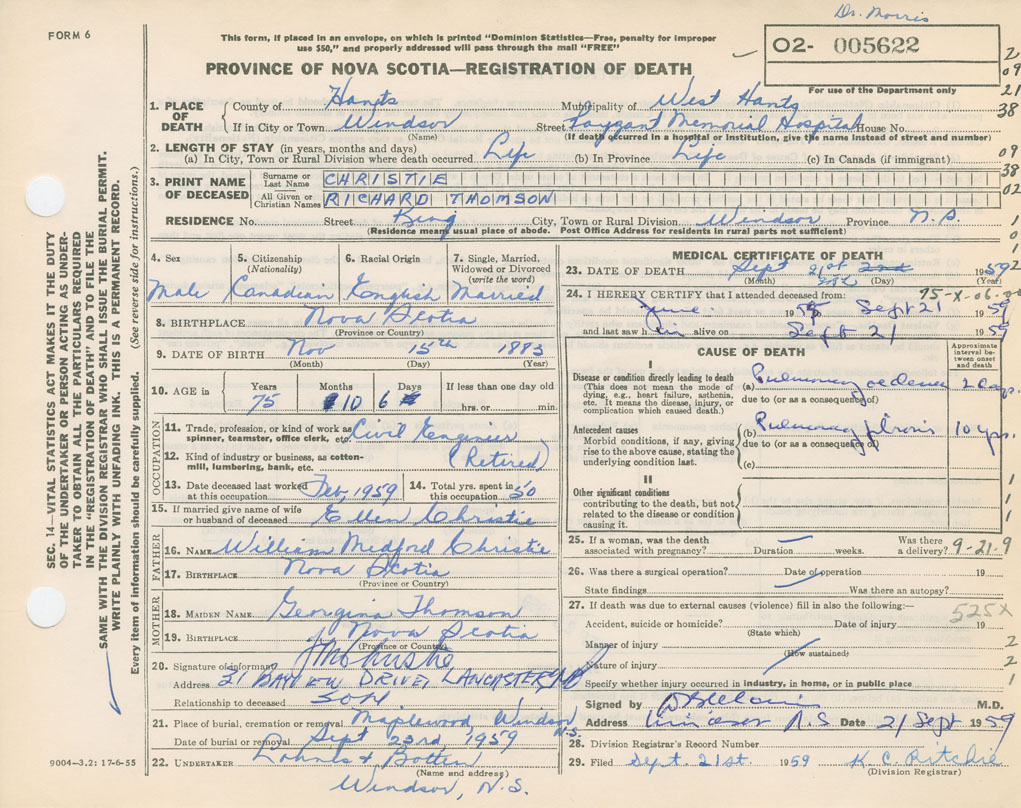 Dr. Morris
FORM 6
This form, if placed in an envelope, on which is printed "Dominion Statistics—Free, penalty for improper
use $50," and properly addressed will pass through the mail "FREE"
02- 005622
PROVINCE OF NOVA SCOTIA—REGISTRATION OF DEATH
For use of the Department only
2
09
21
38
09
38
02
1
0
1
2
1. PLACE OF DEATH
County of Hants Municipality of West Hants
If in City or Town Windsor Street Payzant Memorial Hospital House No.
(Name) (If death occurred in a hospital or institution, give the name instead of street and number)
2. LENGTH OF STAY (in years, months and days)
(a) In City, Town or Rural Division where death occurred Life (b) In Province Life (c) In Canada (if immigrant)
3. PRINT NAME OF DECEASED
Surname or Last Name CHRISTIE
All Given or Christian Names RICHARD THOMSON
RESIDENCE No. Street King City, Town or Rural Division Windsor Province N.S.
(Residence means usual place of abode. Post Office Address for residents in rural parts not sufficient)
4. Sex
Male
5. Citizenship
(Nationality)
Canadian
6. Racial Origin
English
7. Single, Married,
Widowed or Divorced
(write the word)
Married
8. BIRTHPLACE Nova Scotia
(Province or Country)
9. DATE OF BIRTH Nov 15th 1883
(Month) (Day) (Year)
10. AGE in
Years Months Days If less than one day old
75 10 6 hrs. or min.
OCCUPATION
11. Trade, profession, or kind of work as
spinner, teamster, office clerk, etc. Civil Engineer
12. Kind of industry or business, as cotton-
mill, lumbering, bank, etc. (Retired)
13. Date deceased last worked
at this occupation Feb, 1959
14. Total yrs. spent in
this occupation 50
15. If married give name of wife
or husband of deceased Ellen Christie
FATHER
16. NAME William Medford Christie
17. BIRTHPLACE Nova Scotia
(Province or Country)
MOTHER
18. MAIDEN NAME Georgina Thomson
19. BIRTHPLACE Nova Scotia
(Province or Country)
20. Signature of informant
Address 31 BAYVIEW DRIVE, LANCASTER, NB
Relationship to deceased SON
21. Place of burial, cremation or removal Maplewood, Windsor N.S.
Date of burial or removal Sept 23rd, 1959
22. UNDERTAKER Lohnes &
(Name and address)
Windsor, N.S.
9004—3.2: 17-6-55
MEDICAL CERTIFICATE OF DEATH
23. DATE OF DEATH Sept 21st 2nd 1959
(Month) (Day) (Year)
24. I HEREBY CERTIFY that I attended deceased from: 75-X-06-0
June 1959 to Sept 21 1959
and last saw him alive on Sept 21 1959
CAUSE OF DEATH
Approximate
interval be-
tween onset
and death
I
Disease or condition directly leading to death
(This does not mean the mode of
dying, e.g., heart failure, asthenia,
etc. It means the disease, injury, or
complication which caused death.)
(a) Pulmonary oedema 2 days.
due to (or as a consequence of)
Antecedent causes
Morbid conditions, if any, giving
rise to the above cause, stating the
underlying condition last.
(b) Pulmonary fibrosis 10 yrs.
due to (or as a consequence of)
(c)
II
Other significant conditions
contributing to the death, but not
related to the disease or condition
causing it.
1
1
1
25. If a woman, was the death
associated with pregnancy? Duration weeks. Was there
a delivery? 9-21-9
26. Was there a surgical operation? Date of operation 19
State findings Was there an autopsy?
27. If death was due to external causes (violence) fill in also the following:—
525X
Accident, suicide or homicide? Date of injury 19
(State which)
Manner of injury 2
(How sustained)
Nature of injury 2
Specify whether injury occurred in industry, in home, or in public place 1
Signed by M.D.
Address Windsor N.S Date 21 Sept 1959
28. Division Registrar's Record Number
29. Filed Sept. 21st. 1959 K. C. Ritchie
(Division Registrar)
SEC. 14—VITAL STATISTICS ACT MAKES IT THE DUTY
OF THE UNDERTAKER OR PERSON ACTING AS UNDER-
TAKER TO OBTAIN ALL THE PARTICULARS REQUIRED
IN THE "REGISTRATION OF DEATH" AND TO FILE THE
SAME WITH THE DIVISION REGISTRAR WHO SHALL ISSUE THE BURIAL PERMIT.
WRITE PLAINLY WITH UNFADING INK. THIS IS A PERMANENT RECORD.
Every item of information should be carefully supplied. (See reverse side for instructions.)